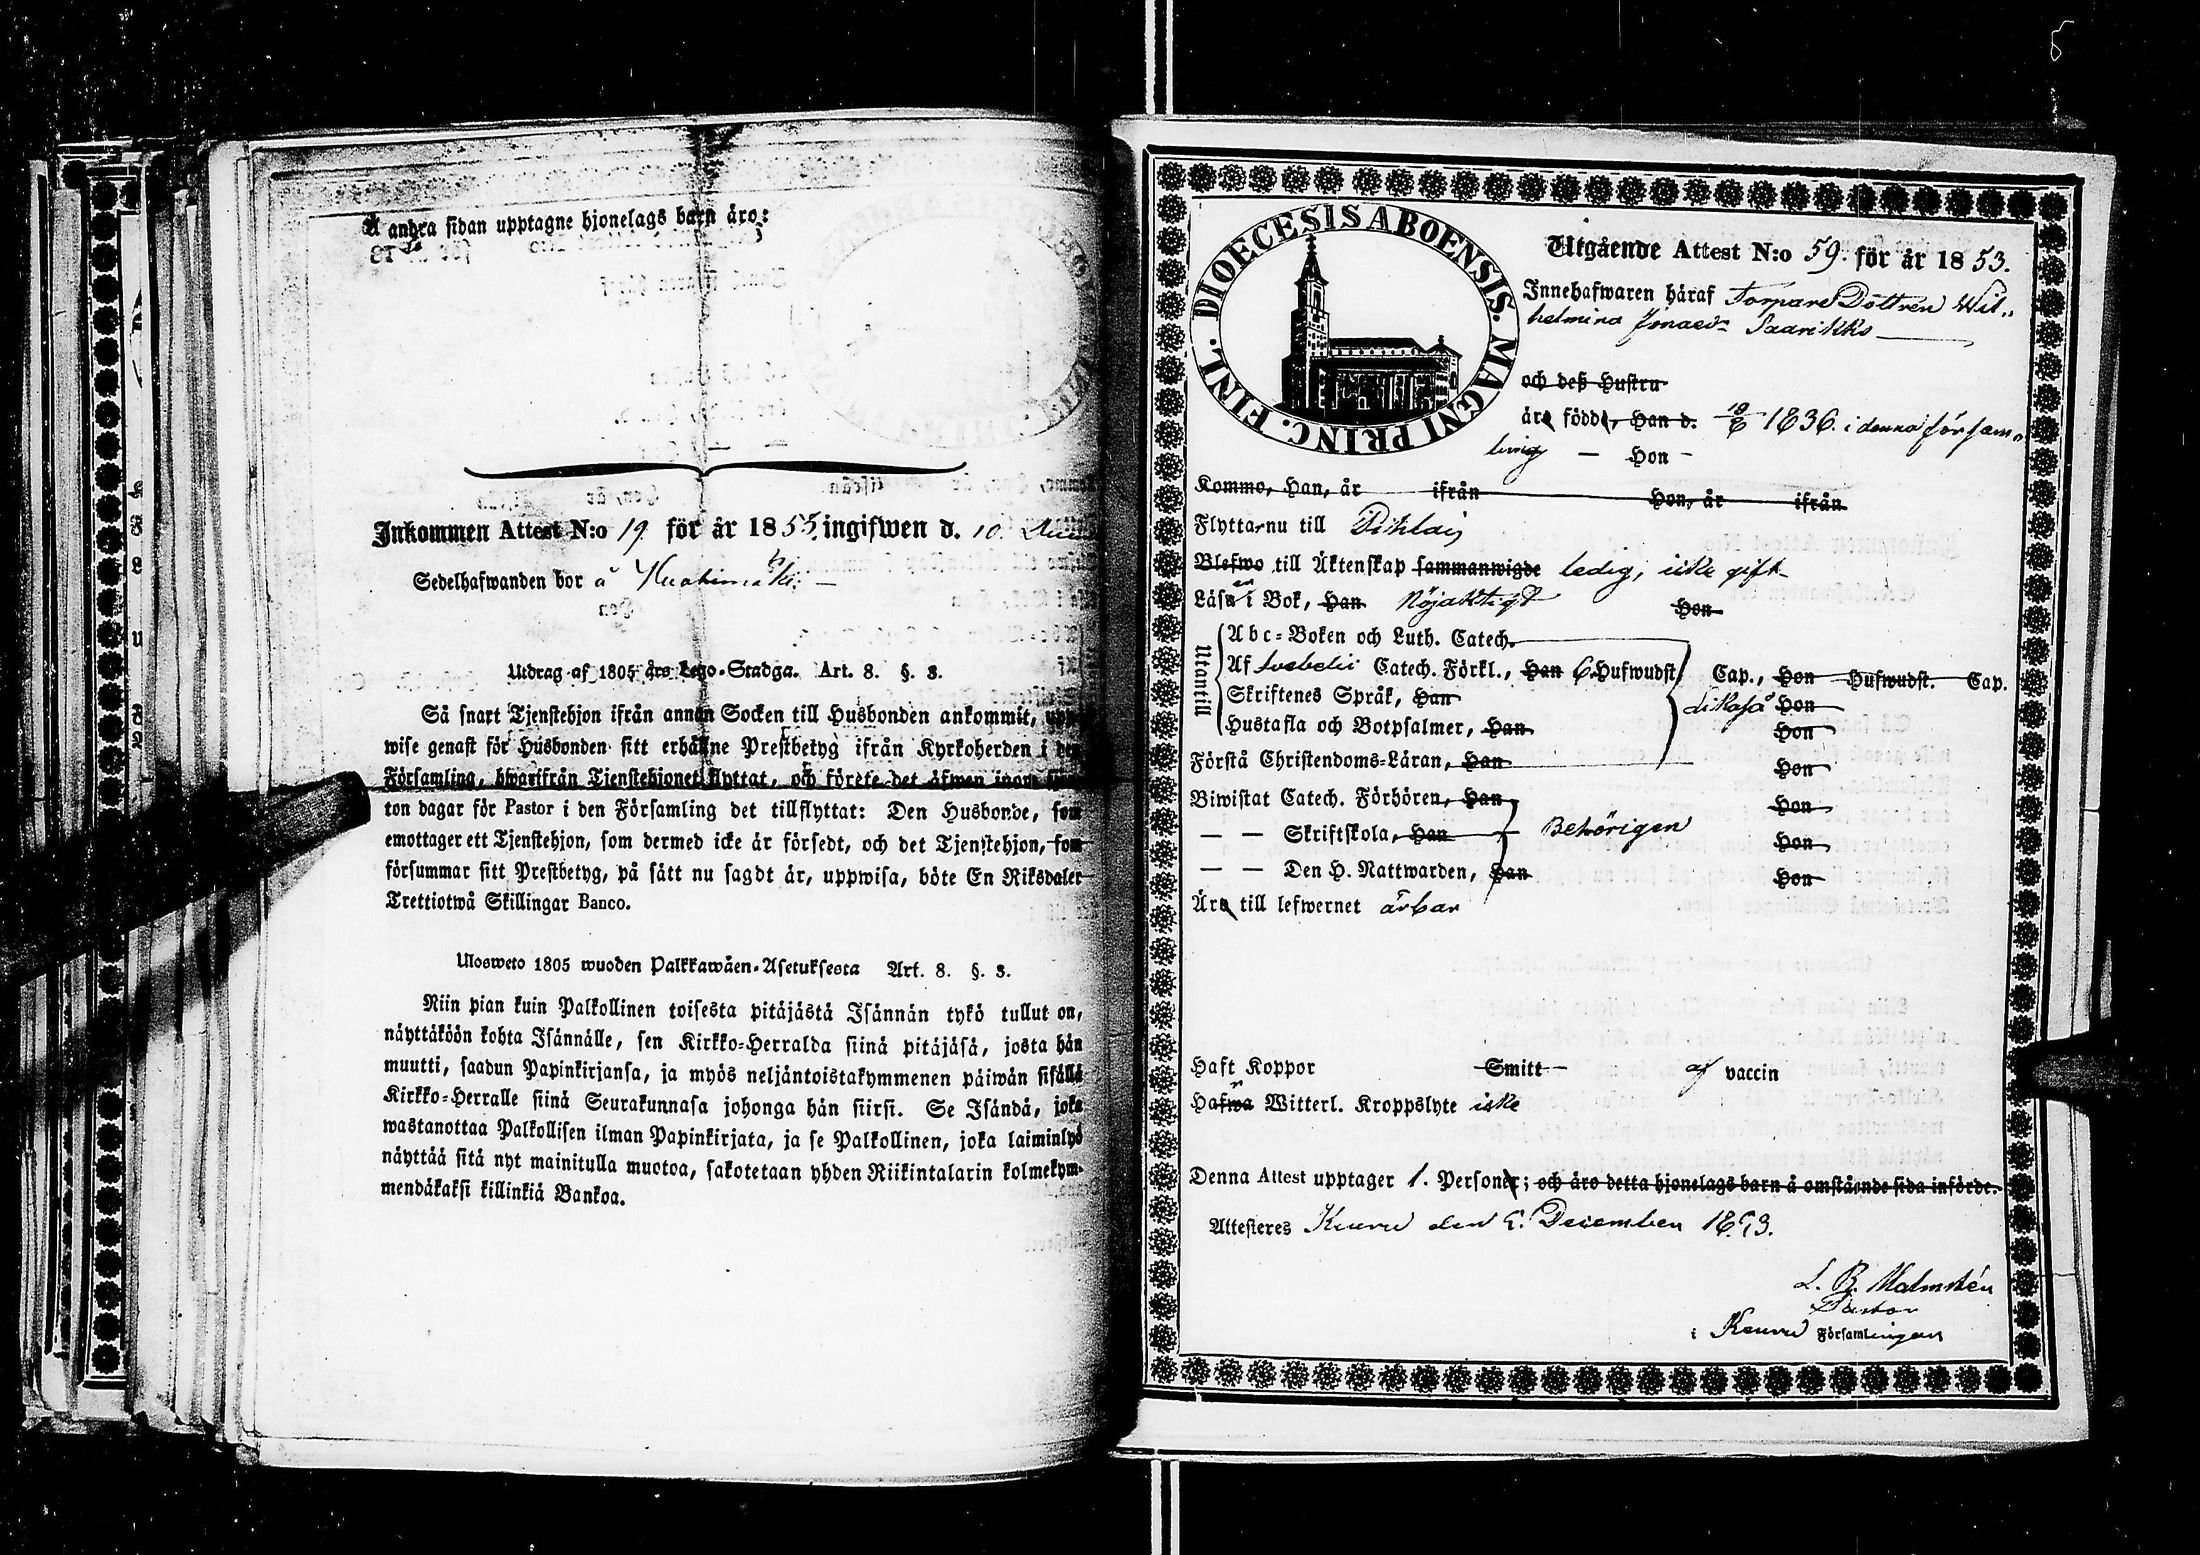 Å andra sidan upptagne hjonelags barn äro:
Inkommen Attest N:o 19. för år 1853. ingifwen d. 10.
Sedelhafwanden bor å
Utdrag af 1805 års Lego-Stadga. Art. 8. §. 3.
Så snart Tjenstehjon ifrån annan Socken till Husbonden ankommit,
wise genast för Husbonden sitt erhållne Prestbetyg ifrån Kyrkoherden i den
Församling, hwarifrån Tjenstehjonet flyttat, och förete det äfwen inom
ton dagar för Pastor i den Församling det tillflyttat: Den Husbonde, som
emottager ett Tjenstehjon, som dermed icke är försedt, och det Tjenstehjon, som
försummar sitt Prestbetyg, på sätt nu sagdt är, uppwisa, böte En Riksdaler
Trettiotwå Skillingar Banco.
Ulosweto 1805 wuoden Palkkawäen-Asetuksesta Art. 8. §. 3.
Niin pian kuin Palkollinen toisesta pitäjästä Isännän tykö tullut on,
näyttäköön kohta Isännälle, sen Kirkko-Herralda siinä pitäjäsä, josta hän
muutti, saadun Papinkirjansa, ja myös neljäntoistakymmenen päiwän sisällä
Kirkko-Herralle siinä Seurakunnasa johonga hän siirsi. Se Isändä, joka
wastanottaa Palkollisen ilman Papinkirjata, ja se Palkollinen, joka laiminlyö
näyttää sitä nyt mainitulla muotoa, sakotetaan yhden Riikintalarin kolmekym-
mendäkaksi killinkiä Bankoa.
DIOECESIS ABOENSIS. MAGNI PRINC. FINL.
Utgående Attest N:o 59. för år 1853.
Innehafwaren häraf Torpare Dottren Wil„
helmina Jonaedr Saarikko
och deß Hustru
äro födde, Han d. 10/6 1836. i denna försam„
ling — Hon —
Kommo, Han, år ifrån Hon, år ifrån
Flytta nu till Pihlais
Blefwo till Äktenskap sammanwigde ledig, icke gift
Läsa i Bok, Han Nöjaktigt Hon
Utantill
Abc-Boken och Luth. Catech.
Af Svebelii Catech. Förkl., Han 6 Hufwudst. Cap., Hon Hufwudst. Cap.
Skriftenes Språk, Han likaså Hon
Hustafla och Botpsalmer, Han Hon
Förstå Christendoms-Läran, Han Hon
Biwistat Catech. Förhören, Han Hon
— — Skriftskola, Han Behörigen Hon
— — Den H. Nattwarden, Han Hon
Äro till lefwernet ärbar
Haft Koppor Smitt af vaccin
Hafwa Witterl. Kroppslyte icke
Denna Attest upptager 1. Personer; och äro detta hjonelags barn å omstående sida införde.
Attesteres Keuru den 5. December 1853.
L. B. Malmstén
Pastor
i Keuru Församlingen